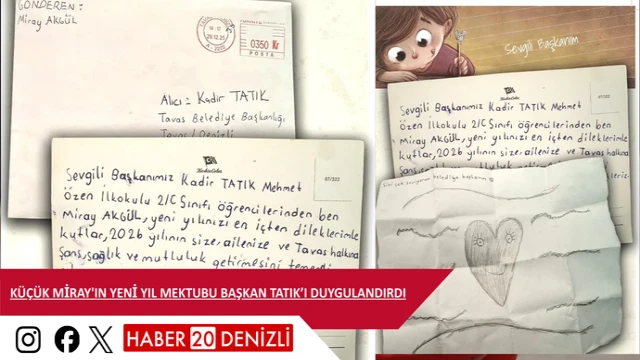 GÖNDEREN:
Miray AKGÜL
0350 Kr
POSTA
Alıcı: Kadir TATIK
Tavas Belediye Başkanlığı
Tavas/Denizli
07/322
Sevgili Başkanımız Kadir TATIK Mehmet
Özen İlkokulu 2/C Sınıfı öğrencilerinden ben
Miray AKGÜL, yeni yılınızı en içten dileklerimle
kutlar, 2026 yılının size, ailenize ve Tavas halkına
Şans, sağlık ve mutluluk getirmesini
Sevgili Başkanım
07/322
Sevgili Başkanımız Kadir TATIK Mehmet
Özen İlkokulu 2/C Sınıfı öğrencilerinden ben
Miray AKGÜL, yeni yılınızı en içten dileklerimle
kutlar, 2026 yılının size, ailenize ve Tavas halkına
Sizi çok seviyorum belediye başkanım
KÜÇÜK MİRAY'IN YENİ YIL MEKTUBU BAŞKAN TATIK'I DUYGULANDIRDI
HABER 20 DENİZLİ